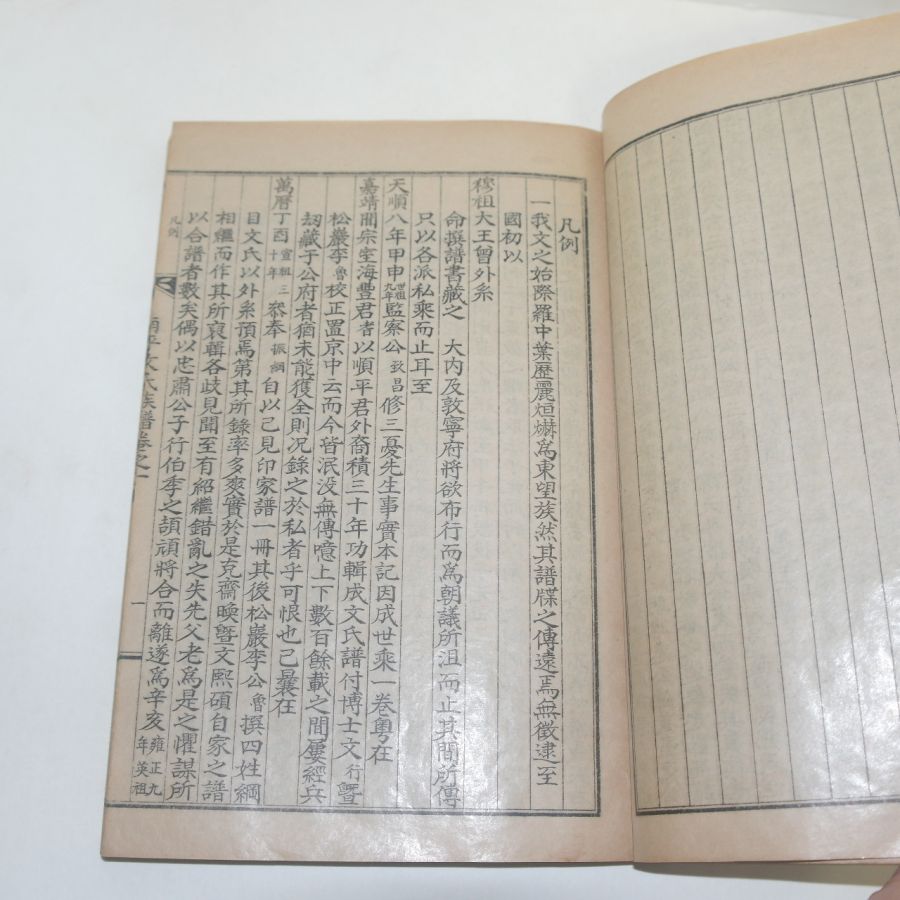 凡例
一我文之始際羅中葉歷麗烜爀爲東望族然其譜牒之傳遠焉無徵逮至
國初以
穆祖大王曾外系
命撰譜書藏之 大內及敦寧府將欲布行而爲朝議所沮而止其間所傳
只以各派私乘而止耳至
天順八年甲申世祖九年監察公致昌修三憂先生事實本記因成世乘一卷粤在
嘉靖間宗室海豊君耆以順平君外裔積三十年功輯成文氏譜付博士文行曁
松巖李魯校正置京中云而今皆泯没無傳噫上下數百餘載之間屢經兵
刼藏于公府者猶未能獲全則况錄之於私者乎可恨也已曩在
萬曆丁酉宣祖三十年叅奉振綱自以己見印家譜一冊其後松巖李公魯撰四姓綱
目文氏以外系預焉第其所錄率多爽實於是克齋㬇曁文熙碩自家之譜
相繼而作其所裒輯各歧見聞至有紹繼錯亂之失先父老爲是之懼謀所
以合譜者數矣偶以忠肅公子行伯季之頡頏將合而離遂爲辛亥雍正九年英祖
凡例
南平文氏族譜卷之一
一